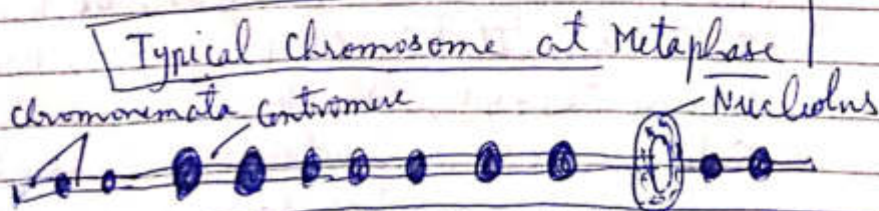 Typical Chromosome at Metaphase
Chromonemata Centromere Nucleolus